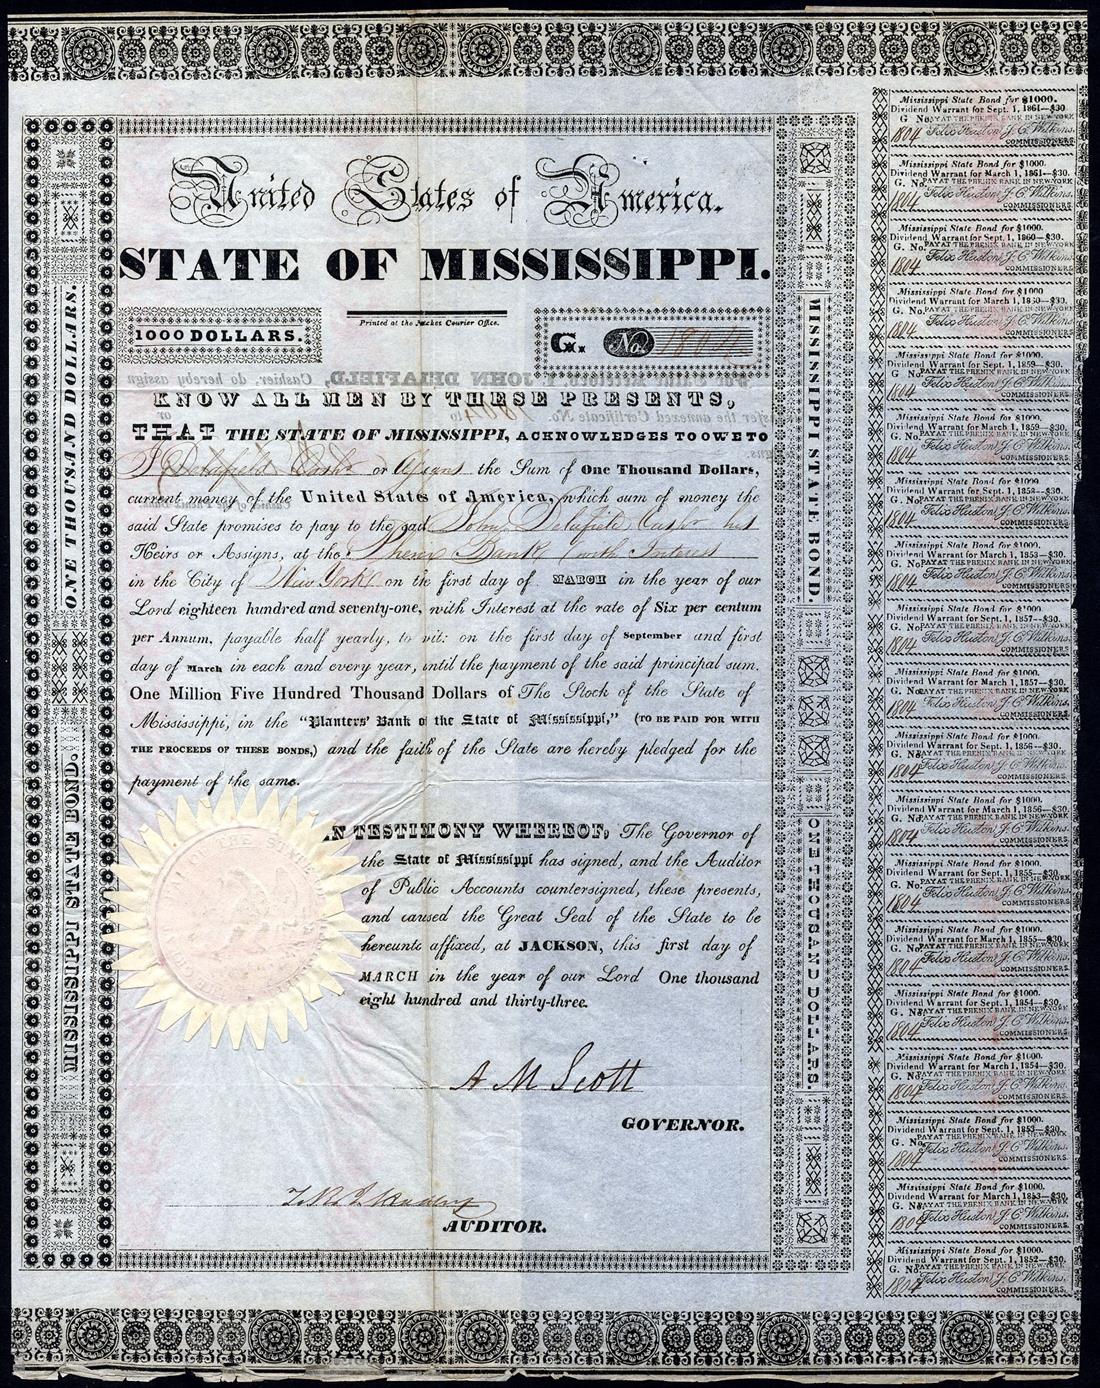 United States of America.
STATE OF MISSISSIPPI.
Printed at the Natchez Courier Office.
1000 DOLLARS.
G. No. 1804
KNOW ALL MEN BY THESE PRESENTS,
THAT THE STATE OF MISSISSIPPI, ACKNOWLEDGES TO OWE TO
J Delafield Cashr or Assigns the Sum of One Thousand Dollars,
current money of the United States of America, which sum of money the
said State promises to pay to the said John Delafield Cashr his
Heirs or Assigns, at the Phenix Bank with Interest
in the City of New York on the first day of MARCH in the year of our
Lord eighteen hundred and seventy-one, with Interest at the rate of Six per centum
per Annum, payable half yearly, to wit: on the first day of September and first
day of March in each and every year, until the payment of the said principal sum.
One Million Five Hundred Thousand Dollars of The Stock of the State of
Mississippi, in the "Planters' Bank of the State of Mississippi," (TO BE PAID FOR WITH
THE PROCEEDS OF THESE BONDS,) and the faith of the State are hereby pledged for the
payment of the same.
IN TESTIMONY WHEREOF, The Governor of
the State of Mississippi has signed, and the Auditor
of Public Accounts countersigned, these presents,
and caused the Great Seal of the State to be
hereunto affixed, at JACKSON, this first day of
MARCH in the year of our Lord One thousand
eight hundred and thirty-three.
A M Scott
GOVERNOR.
AUDITOR.
ONE THOUSAND DOLLARS.
MISSISSIPPI STATE BOND.
MISSISSIPPI STATE BOND.
ONE THOUSAND DOLLARS.
Mississippi State Bond for $1000.
Dividend Warrant for Sept. 1, 1861—$30
G No. PAY AT THE PHENIX BANK IN NEW YORK
1804 Felix Huston J. C. Wilkins.
COMMISSIONERS.
Mississippi State Bond for $1000.
Dividend Warrant for March 1, 1861—$30.
G. No. PAY AT THE PHENIX BANK IN NEW YORK
1804 Felix Huston J. C. Wilkins.
COMMISSIONERS
Mississippi State Bond for $1000.
Dividend Warrant for Sept. 1, 1860—$30.
G. No. PAY AT THE PHENIX BANK IN NEW YORK
1804 Felix Huston J. C. Wilkins.
COMMISSIONERS
Mississippi State Bond for $1000
Dividend Warrant for March 1, 18 0—$30.
G. No. PAY AT THE PHENIX BANK IN NEW YORK
1804 Felix Huston J. C. Wilkins.
COMMISSIONERS
Mississippi State Bond for $1000.
Dividend Warrant for Sept. 1, 1859—$30.
No. PAY AT THE PHENIX BANK IN NEW YORK
1804 Felix Huston J. C. Wilkins.
COMMISSIONERS
Mississippi State Bond for $1000.
Dividend Warrant for March 1, 1859—$30.
G. No. PAY AT THE PHENIX BANK IN NEW YORK
1804 Felix Huston J. C. Wilkins.
COMMISSIONERS
Mississippi State Bond for $1000.
Dividend Warrant for Sept. 1, 1858—$30.
G. No. PAY AT THE PHENIX BANK IN NEW YORK
1804 Felix Huston J. C. Wilkins.
COMMISSIONERS
Mississippi State Bond for $1000.
Dividend Warrant for March 1, 1858—$30.
G. No. PAY AT THE PHENIX BANK IN NEW YORK
1804 Felix Huston J. C. Wilkins.
COMMISSIONERS
Mississippi State Bond for $1000.
Dividend Warrant for Sept. 1, 1857—$30.
G. No. PAY AT THE PHENIX BANK IN NEW YORK
1804 Felix Huston J. C. Wilkins.
COMMISSIONERS
Mississippi State Bond for $1000.
Dividend Warrant for March 1, 1857—$30.
G. No. PAY AT THE PHENIX BANK IN NEW YORK
1804 Felix Huston J. C. Wilkins.
COMMISSIONERS
Mississippi State Bond for $1000.
Dividend Warrant for Sept. 1, 1856—$30.
G. No. PAY AT THE PHENIX BANK IN NEW YORK
1804 Felix Huston J. C. Wilkins.
COMMISSIONERS
Mississippi State Bond for $1000.
Dividend Warrant for March 1, 1856—$30.
G. No. PAY AT THE PHENIX BANK IN NEW YORK
1804 Felix Huston J. C. Wilkins.
COMMISSIONERS
Mississippi State Bond for $1000.
Dividend Warrant for Sept. 1, 1855—$30.
G. No. PAY AT THE PHENIX BANK IN NEW YORK
1804 Felix Huston J. C. Wilkins.
COMMISSIONERS
Mississippi State Bond for $1000.
Dividend Warrant for March 1, 1855—$30.
G. No. PAY AT THE PHENIX BANK IN NEW YORK
1804 Felix Huston J. C. Wilkins.
COMMISSIONERS
Mississippi State Bond for $1000.
Dividend Warrant for Sept. 1, 1854—$30.
G. No. PAY AT THE PHENIX BANK IN NEW YORK
1804 Felix Huston J. C. Wilkins.
COMMISSIONERS
Mississippi State Bond for $1000.
Dividend Warrant for March 1, 1854—$30.
G. No. PAY AT THE PHENIX BANK IN NEW YORK
1804 Felix Huston J. C. Wilkins.
COMMISSIONERS.
Mississippi State Bond for $1000.
Dividend Warrant for Sept. 1, 1853—$30.
G. No. PAY AT THE PHENIX BANK IN NEW YORK
1804 Felix Huston J. C. Wilkins.
COMMISSIONERS.
Mississippi State Bond for $1000.
Dividend Warrant for March 1, 1853—$30.
G. No. PAY AT THE PHENIX BANK IN NEW YORK
1804 Felix Huston J. C. Wilkins.
COMMISSIONERS.
Mississippi State Bond for $1000.
Dividend Warrant for Sept. 1, 1852—$30.
G. No. PAY AT THE PHENIX BANK IN NEW YORK
1804 Felix Huston J. C. Wilkins.
COMMISSIONERS